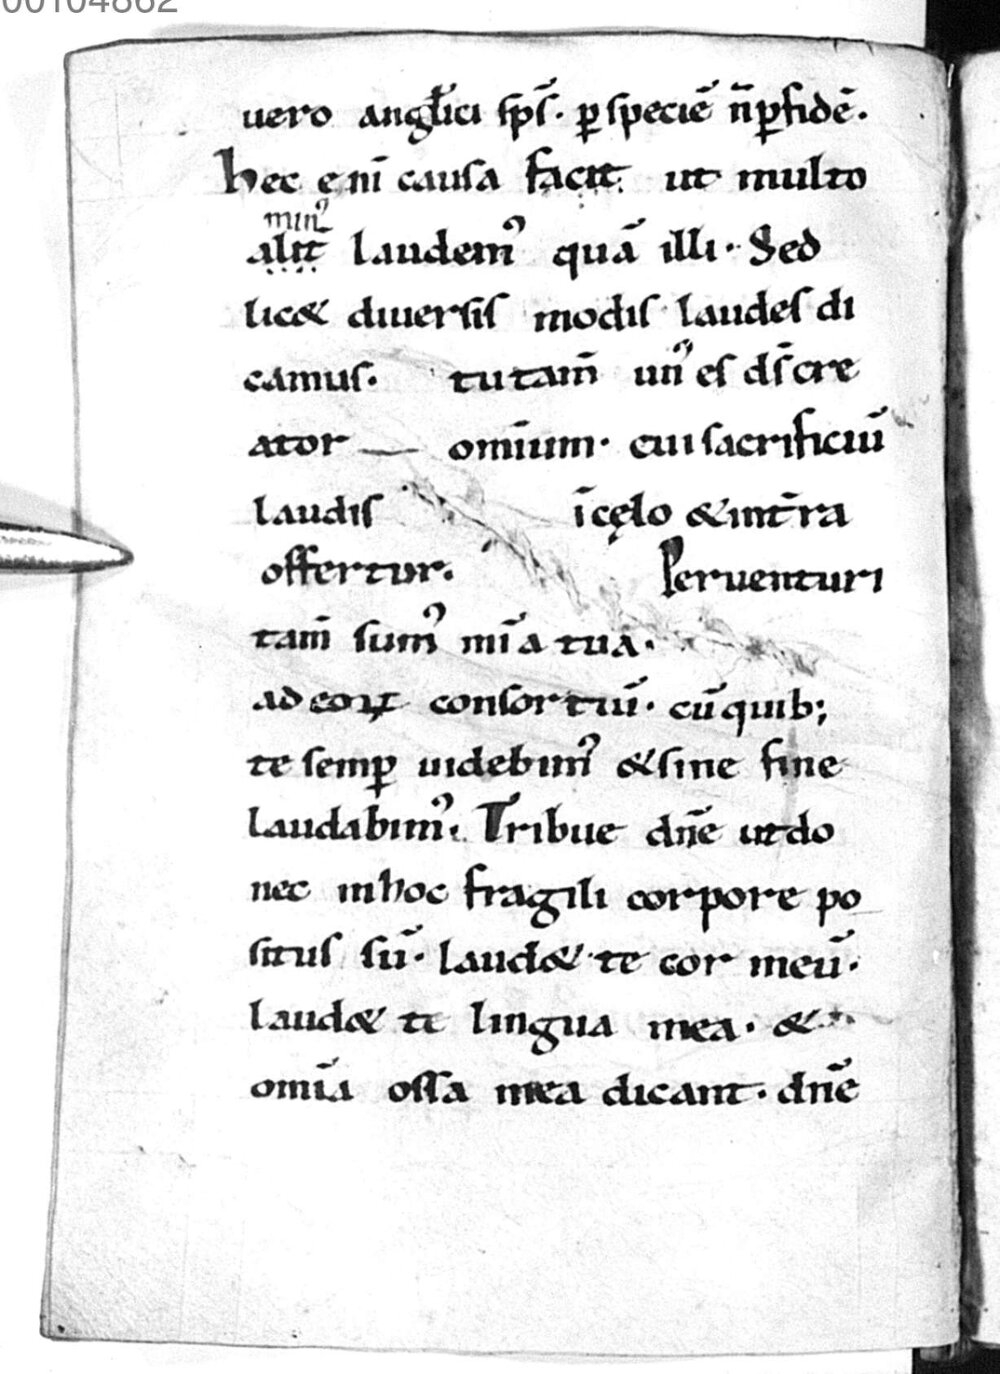 00104862
uero angl̄ici sp̄s. ꝑ speciē n̄ ꝑ fidē.
hec enī causa facit. ut multo
min᷒
alit̄ laudem᷒ quā illi. Sed
lic& diuersis modis laudes di
camus. tu tam̄ un᷒ es d̄s cre
ator — om̄ium. cui sacrificiū
laudis ī cęlo & in t̄ra
offertur. Peruenturi
tam̄ sum᷒ mīa tua.
ad eoꝝ consortiū. cū quib;
te semꝑ uidebim᷒ & sine fine
laudabim᷒. Tribue dn̄e ut do
nec in hoc fragili corpore po
situs sū. laud& te cor meū.
laud& te lingua mea. &
om̄ia ossa mea dicant. dn̄e